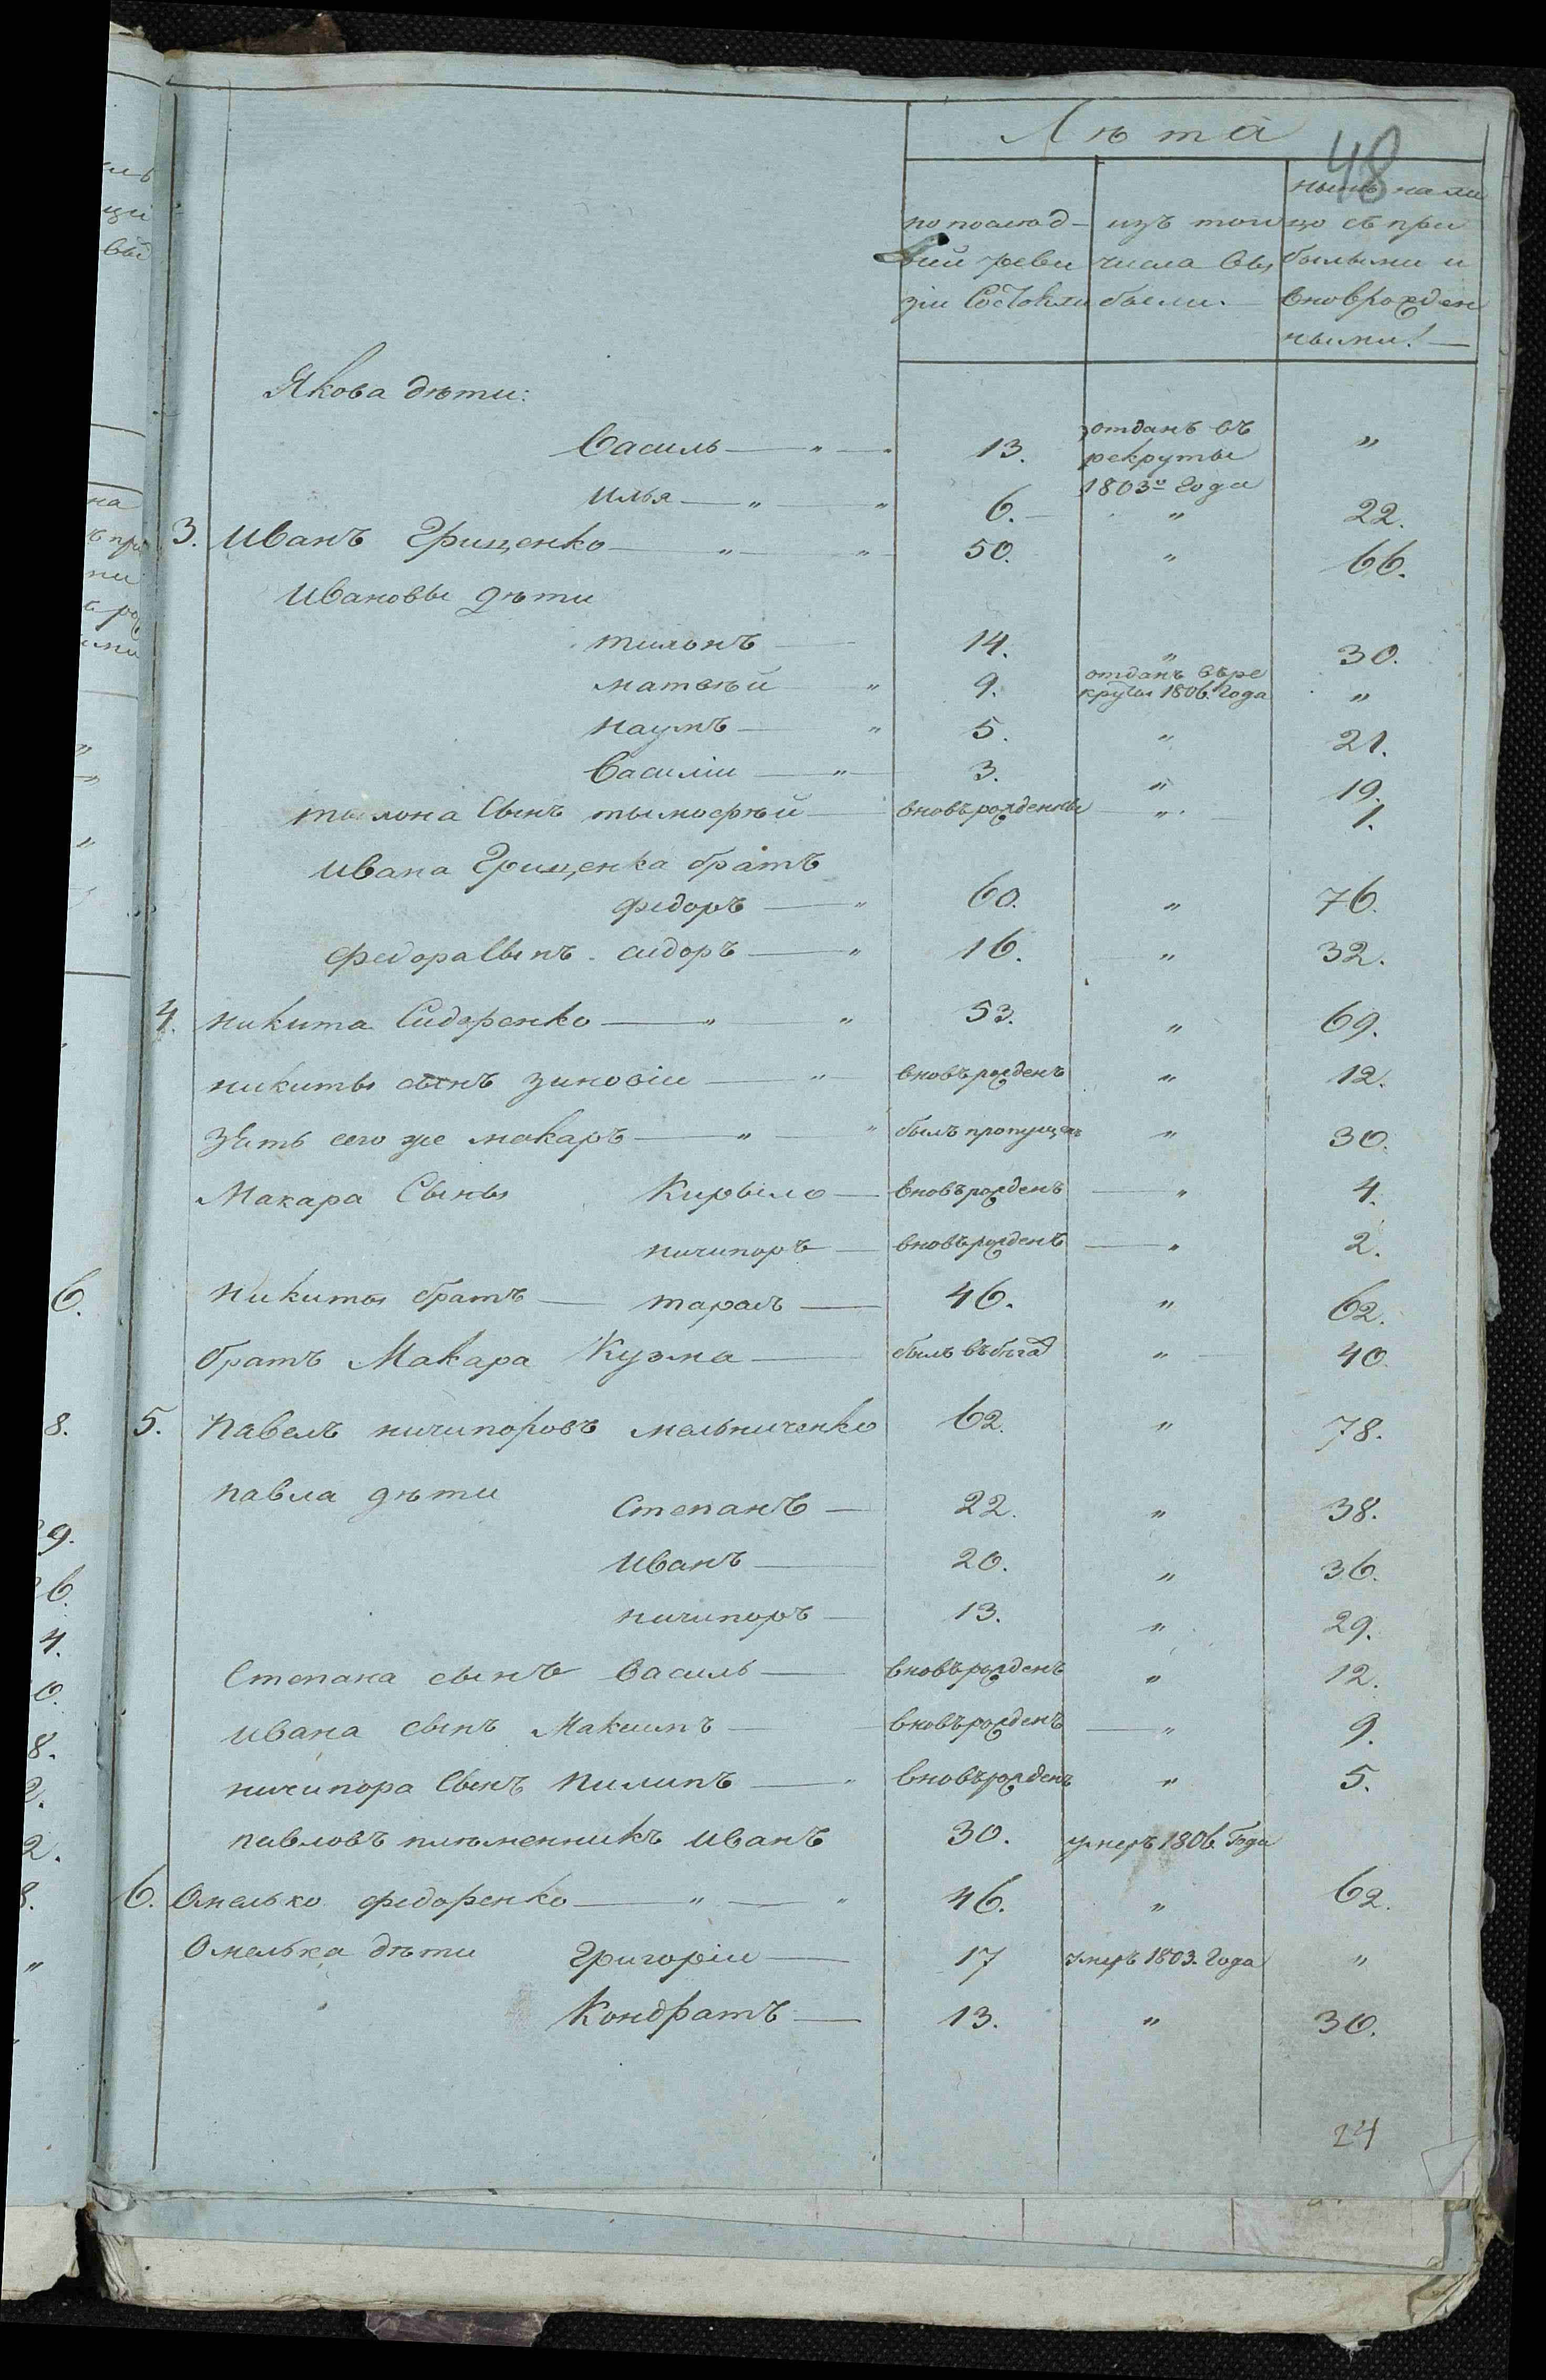 Лѣта
48
по послѣд- изъ того нынѣ нали
ней реви числа вы цо съ при
зіи Состояли были. былыми и
вновърожден
ными!
Якова дѣти:
Василь — " — " 13. отданъ въ рекруты 1803го Года "
илья — " " 6. " 22.
3. Иванъ Грищенко — " " 50. " 66.
Ивановы дѣти
тихонъ 14. " 30.
матвѣй " 9. отданъ въре круты 1806. Года "
наумъ — " 5. " 21.
Василіи — " 3. " 19.
Сынъ тымофѣй вновърожденны " 1.
ивана Грищенка братъ
федоръ — " 60. " 76.
федора Сынъ. сидоръ — " 16. " 32.
4. никита Сидоренко — " " 53. " 69.
никиты сынъ зиновіи — " вновърожденъ " 12.
Зять его же макаръ — " " былъ пропущенъ " 30.
Макара Сыны Кирыло — вновърожденъ — " 4.
ничипоръ — вновърожденъ — " 2.
никиты братъ — тарасъ — 46. " 62.
братъ Макара Кузма — былъ въбѣга " 40.
5. Павелъ ничипоровъ мельниченко 62. " 78.
павла дѣти Степанъ — 22. " 38.
иванъ — 20. " 36.
ничипоръ — 13. " 29.
Степана сынъ василь — вновърожденъ " 12.
ивана сынъ Максимъ — вновърожденъ — " 9.
ничипора Сынъ пилипъ — " вновърожденъ " 5.
павловъ племенникъ иванъ 30. умеръ 1806. Года
6. Омелько федоренко — " — " 46. " 62.
Омелька дѣти Григоріи — 17 умеръ 1803. Года "
Кондратъ — 13. " 30.
24